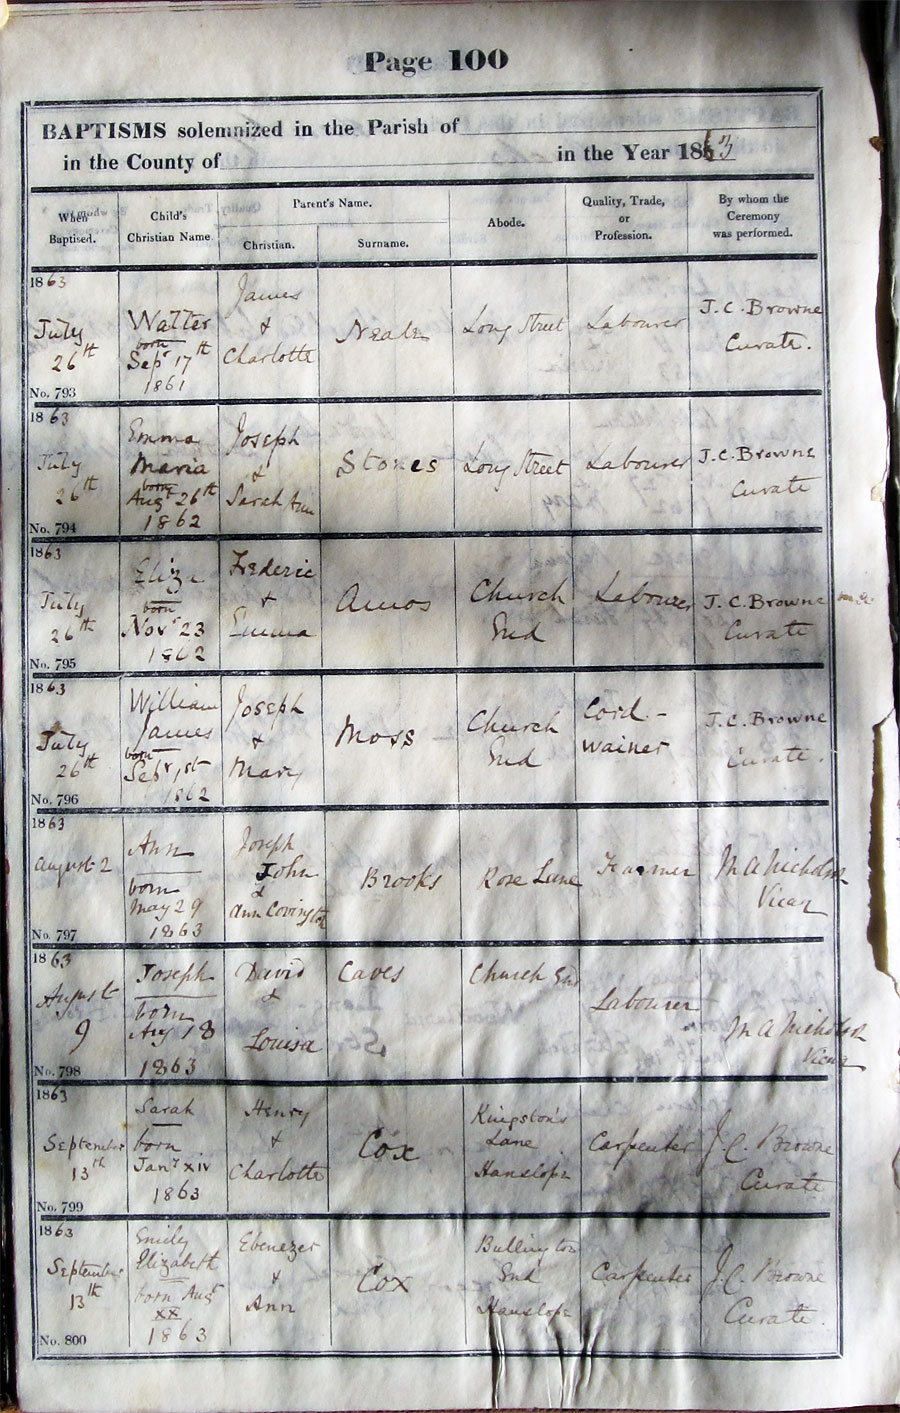 Page 100
BAPTISMS solemnized in the Parish of
in the County of in the Year 1863
When Baptised.
Child's Christian Name.
Parent's Name.
Christian.
Surname.
Abode.
Quality, Trade, or Profession.
By whom the Ceremony was performed.
1863
July 26th
No. 793
Walter
born
Sepr 17th
1861
James
&
Charlotte
Neale
Long Street
Labourer
J. C. Browne
Curate.
1863
July 26th
No. 794
Emma
Maria
born
Augt 26th
1862
Joseph
&
Sarah Ann
Stones
Long Street
Labourer
J. C. Browne
Curate
1863
July 26th
No. 795
Eliza
born
Novr 23
1862
Frederic
&
Emma
Amos
Church
End
Labourer
J. C. Browne
Curate
1863
July 26th
No. 796
William
James
born
Sepr 1st
1862
Joseph
&
Mary
Moss
Church
End
Cord-
wainer
J. C. Browne
Curate.
1863
August 2
No. 797
Ann
born
May 29
1863
Joseph
John
&
Ann Covington
Brooks
Rose Lane
Farmer
M A Nicholson
Vicar
1863
August
9
No. 798
Joseph
born
Aug 18
1863
David
&
Louisa
Caves
Church End
Labourer
M A Nicholson
Vicar
1863
September
13th
No. 799
Sarah
born
Jany xiv
1863
Henry
&
Charlotte
Cox
Kingston's
Lane
Hanslope
Carpenter
J. C. Browne
Curate
1863
September
13th
No. 800
Emily
Elizabeth
born Augt
xx
1863
Ebenezer
&
Ann
Cox
Bullington
End
Hanslope
Carpenter
J. C. Browne
Curate.